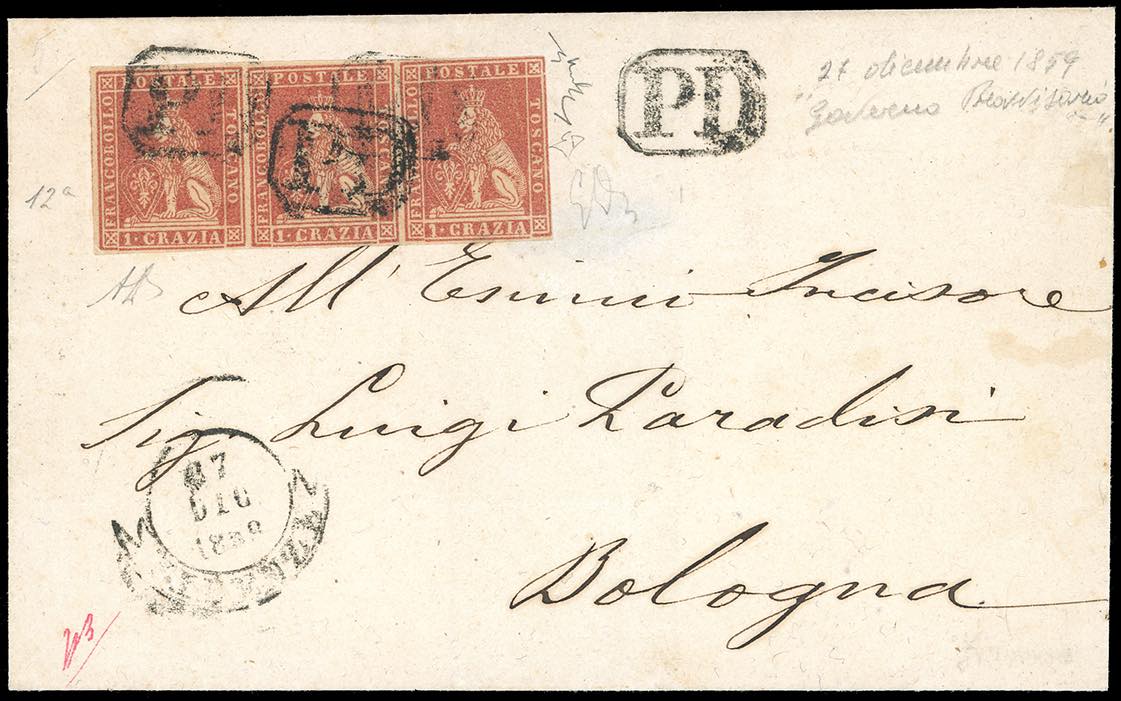 POSTALE POSTALE POSTALE
FRANCOBOLLO TOSCANO FRANCOBOLLO TOSCANO FRANCOBOLLO TOSCANO
1·CRAZIA 1·CRAZIA 1·CRAZIA
PD
PD
27 dicembre 1859
"Governo Provvisorio"
12a
All' Esimio Incisore
Sig. Luigi Paradisi
Bologna
27
DIC